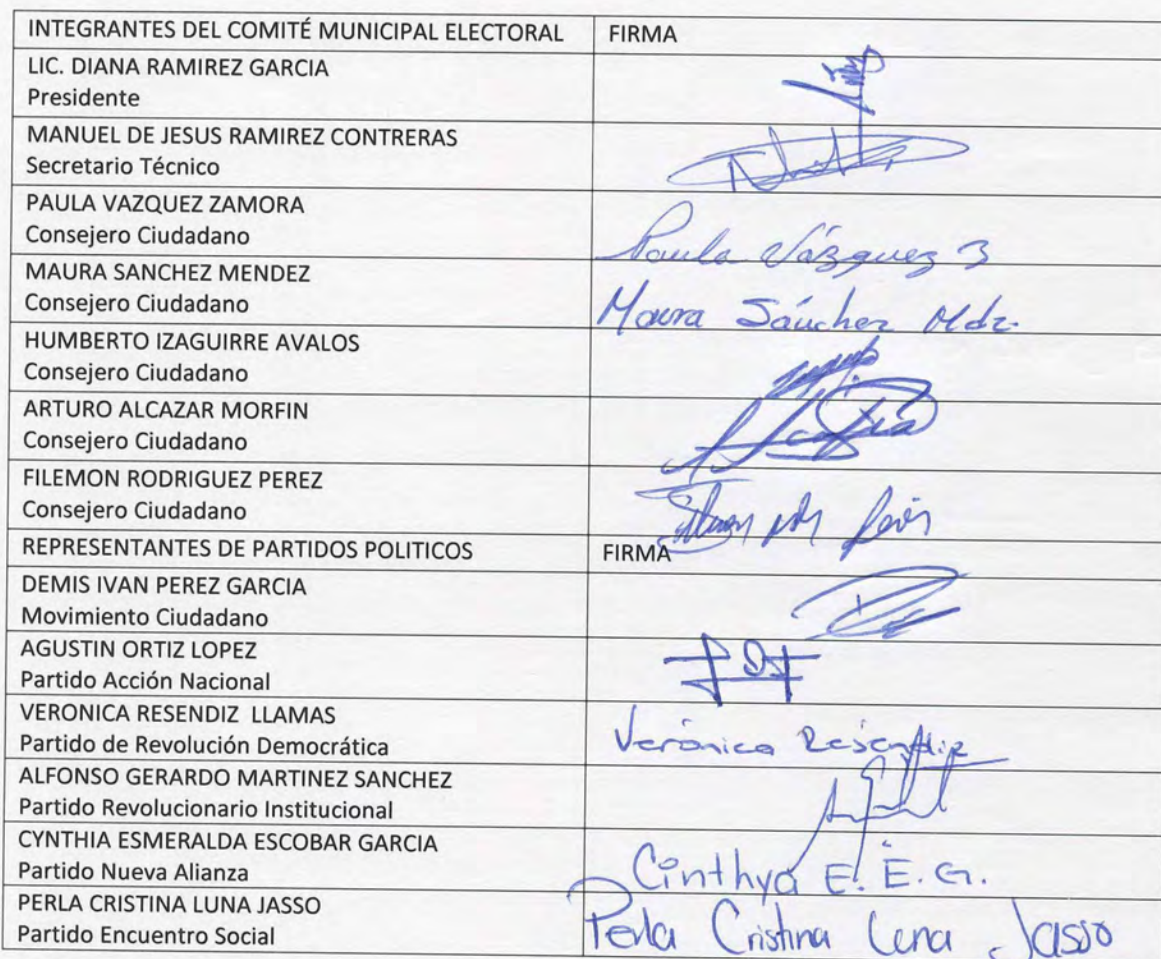 INTEGRANTES DEL COMITÉ MUNICIPAL ELECTORAL FIRMA
LIC. DIANA RAMIREZ GARCIA
Presidente
MANUEL DE JESUS RAMIREZ CONTRERAS
Secretario Técnico
PAULA VAZQUEZ ZAMORA
Consejero Ciudadano Paula Vázquez Z
MAURA SANCHEZ MENDEZ
Consejero Ciudadano Maura Sánchez Mdz.
HUMBERTO IZAGUIRRE AVALOS
Consejero Ciudadano
ARTURO ALCAZAR MORFIN
Consejero Ciudadano
FILEMON RODRIGUEZ PEREZ
Consejero Ciudadano
REPRESENTANTES DE PARTIDOS POLITICOS FIRMA
DEMIS IVAN PEREZ GARCIA
Movimiento Ciudadano
AGUSTIN ORTIZ LOPEZ
Partido Acción Nacional
VERONICA RESENDIZ LLAMAS
Partido de Revolución Democrática Verónica Reséndiz
ALFONSO GERARDO MARTINEZ SANCHEZ
Partido Revolucionario Institucional
CYNTHIA ESMERALDA ESCOBAR GARCIA
Partido Nueva Alianza Cinthya E. E. G.
PERLA CRISTINA LUNA JASSO
Partido Encuentro Social Perla Cristina Luna Jasso